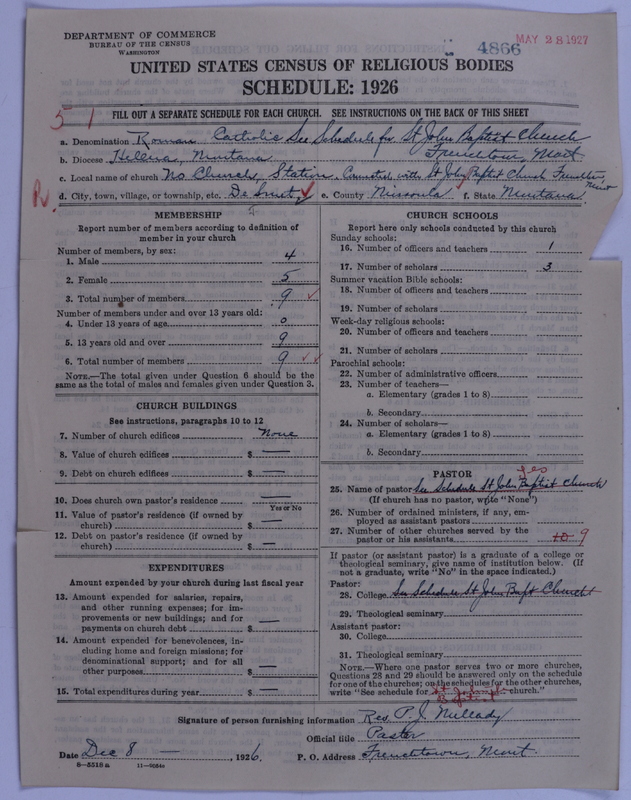 DEPARTMENT OF COMMERCE
BUREAU OF THE CENSUS
WASHINGTON
4866
MAY 28 1927
UNITED STATES CENSUS OF RELIGIOUS BODIES
SCHEDULE: 1926
51
FILL OUT A SEPARATE SCHEDULE FOR EACH CHURCH. SEE INSTRUCTIONS ON THE BACK OF THIS SHEET
a. Denomination Roman Catholic See Schedule for St John Baptist Church
b. Diocese Helena, Montana Frenchtown, Mont
c. Local name of church No Church, Station, Connected with St John Baptist Church Frenchtown, Mont
R. d. City, town, village, or township, etc. De Smet e. County Missoula f. State Montana
MEMBERSHIP
Report number of members according to definition of
member in your church
Number of members, by sex:
1. Male 4
2. Female 5
3. Total number of members 9 ✓
Number of members under and over 13 years old:
4. Under 13 years of age 0
5. 13 years old and over 9
6. Total number of members 9 ✓✓
NOTE.—The total given under Question 6 should be the
same as the total of males and females given under Question 3.
CHURCH BUILDINGS
See instructions, paragraphs 10 to 12
7. Number of church edifices None
8. Value of church edifices $ —
9. Debt on church edifices $ —
10. Does church own pastor's residence —
Yes or No
11. Value of pastor's residence (if owned by
church) $ —
12. Debt on pastor's residence (if owned by
church) $ —
EXPENDITURES
Amount expended by your church during last fiscal year
13. Amount expended for salaries, repairs,
and other running expenses; for im-
provements or new buildings; and for
payments on church debt $ —
14. Amount expended for benevolences, in-
cluding home and foreign missions; for
denominational support; and for all
other purposes $ —
15. Total expenditures during year $ —
CHURCH SCHOOLS
Report here only schools conducted by this church
Sunday schools:
16. Number of officers and teachers 1
17. Number of scholars 3
Summer vacation Bible schools:
18. Number of officers and teachers
19. Number of scholars
Week-day religious schools:
20. Number of officers and teachers
21. Number of scholars
Parochial schools:
22. Number of administrative officers
23. Number of teachers—
a. Elementary (grades 1 to 8)
b. Secondary
24. Number of scholars—
a. Elementary (grades 1 to 8)
b. Secondary
PASTOR
yes
25. Name of pastor See Schedule St John Baptist Church
(If church has no pastor, write "None")
26. Number of ordained ministers, if any, em-
ployed as assistant pastors
27. Number of other churches served by the
pastor or his assistants 10 9
If pastor (or assistant pastor) is a graduate of a college or
theological seminary, give name of institution below. (If
not a graduate, write "No" in the space indicated.)
Pastor:
28. College See Schedule St John Bapt Church
29. Theological seminary
Assistant pastor:
30. College
31. Theological seminary
NOTE.—Where one pastor serves two or more churches,
Questions 28 and 29 should be answered only on the schedule
for one of the churches; on the schedules for the other churches,
write "See schedule for St John's church."
Baptist
Signature of person furnishing information Rev. P. J. Nulleady
Official title Pastor
Date Dec 8 —, 1926. P. O. Address Frenchtown, Mont.
8—5518a 11—9054a